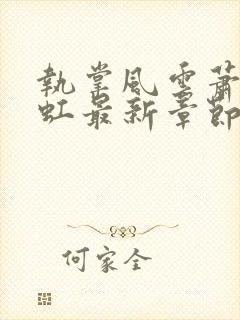 執掌風雲蕭
虹最新章節
何家全